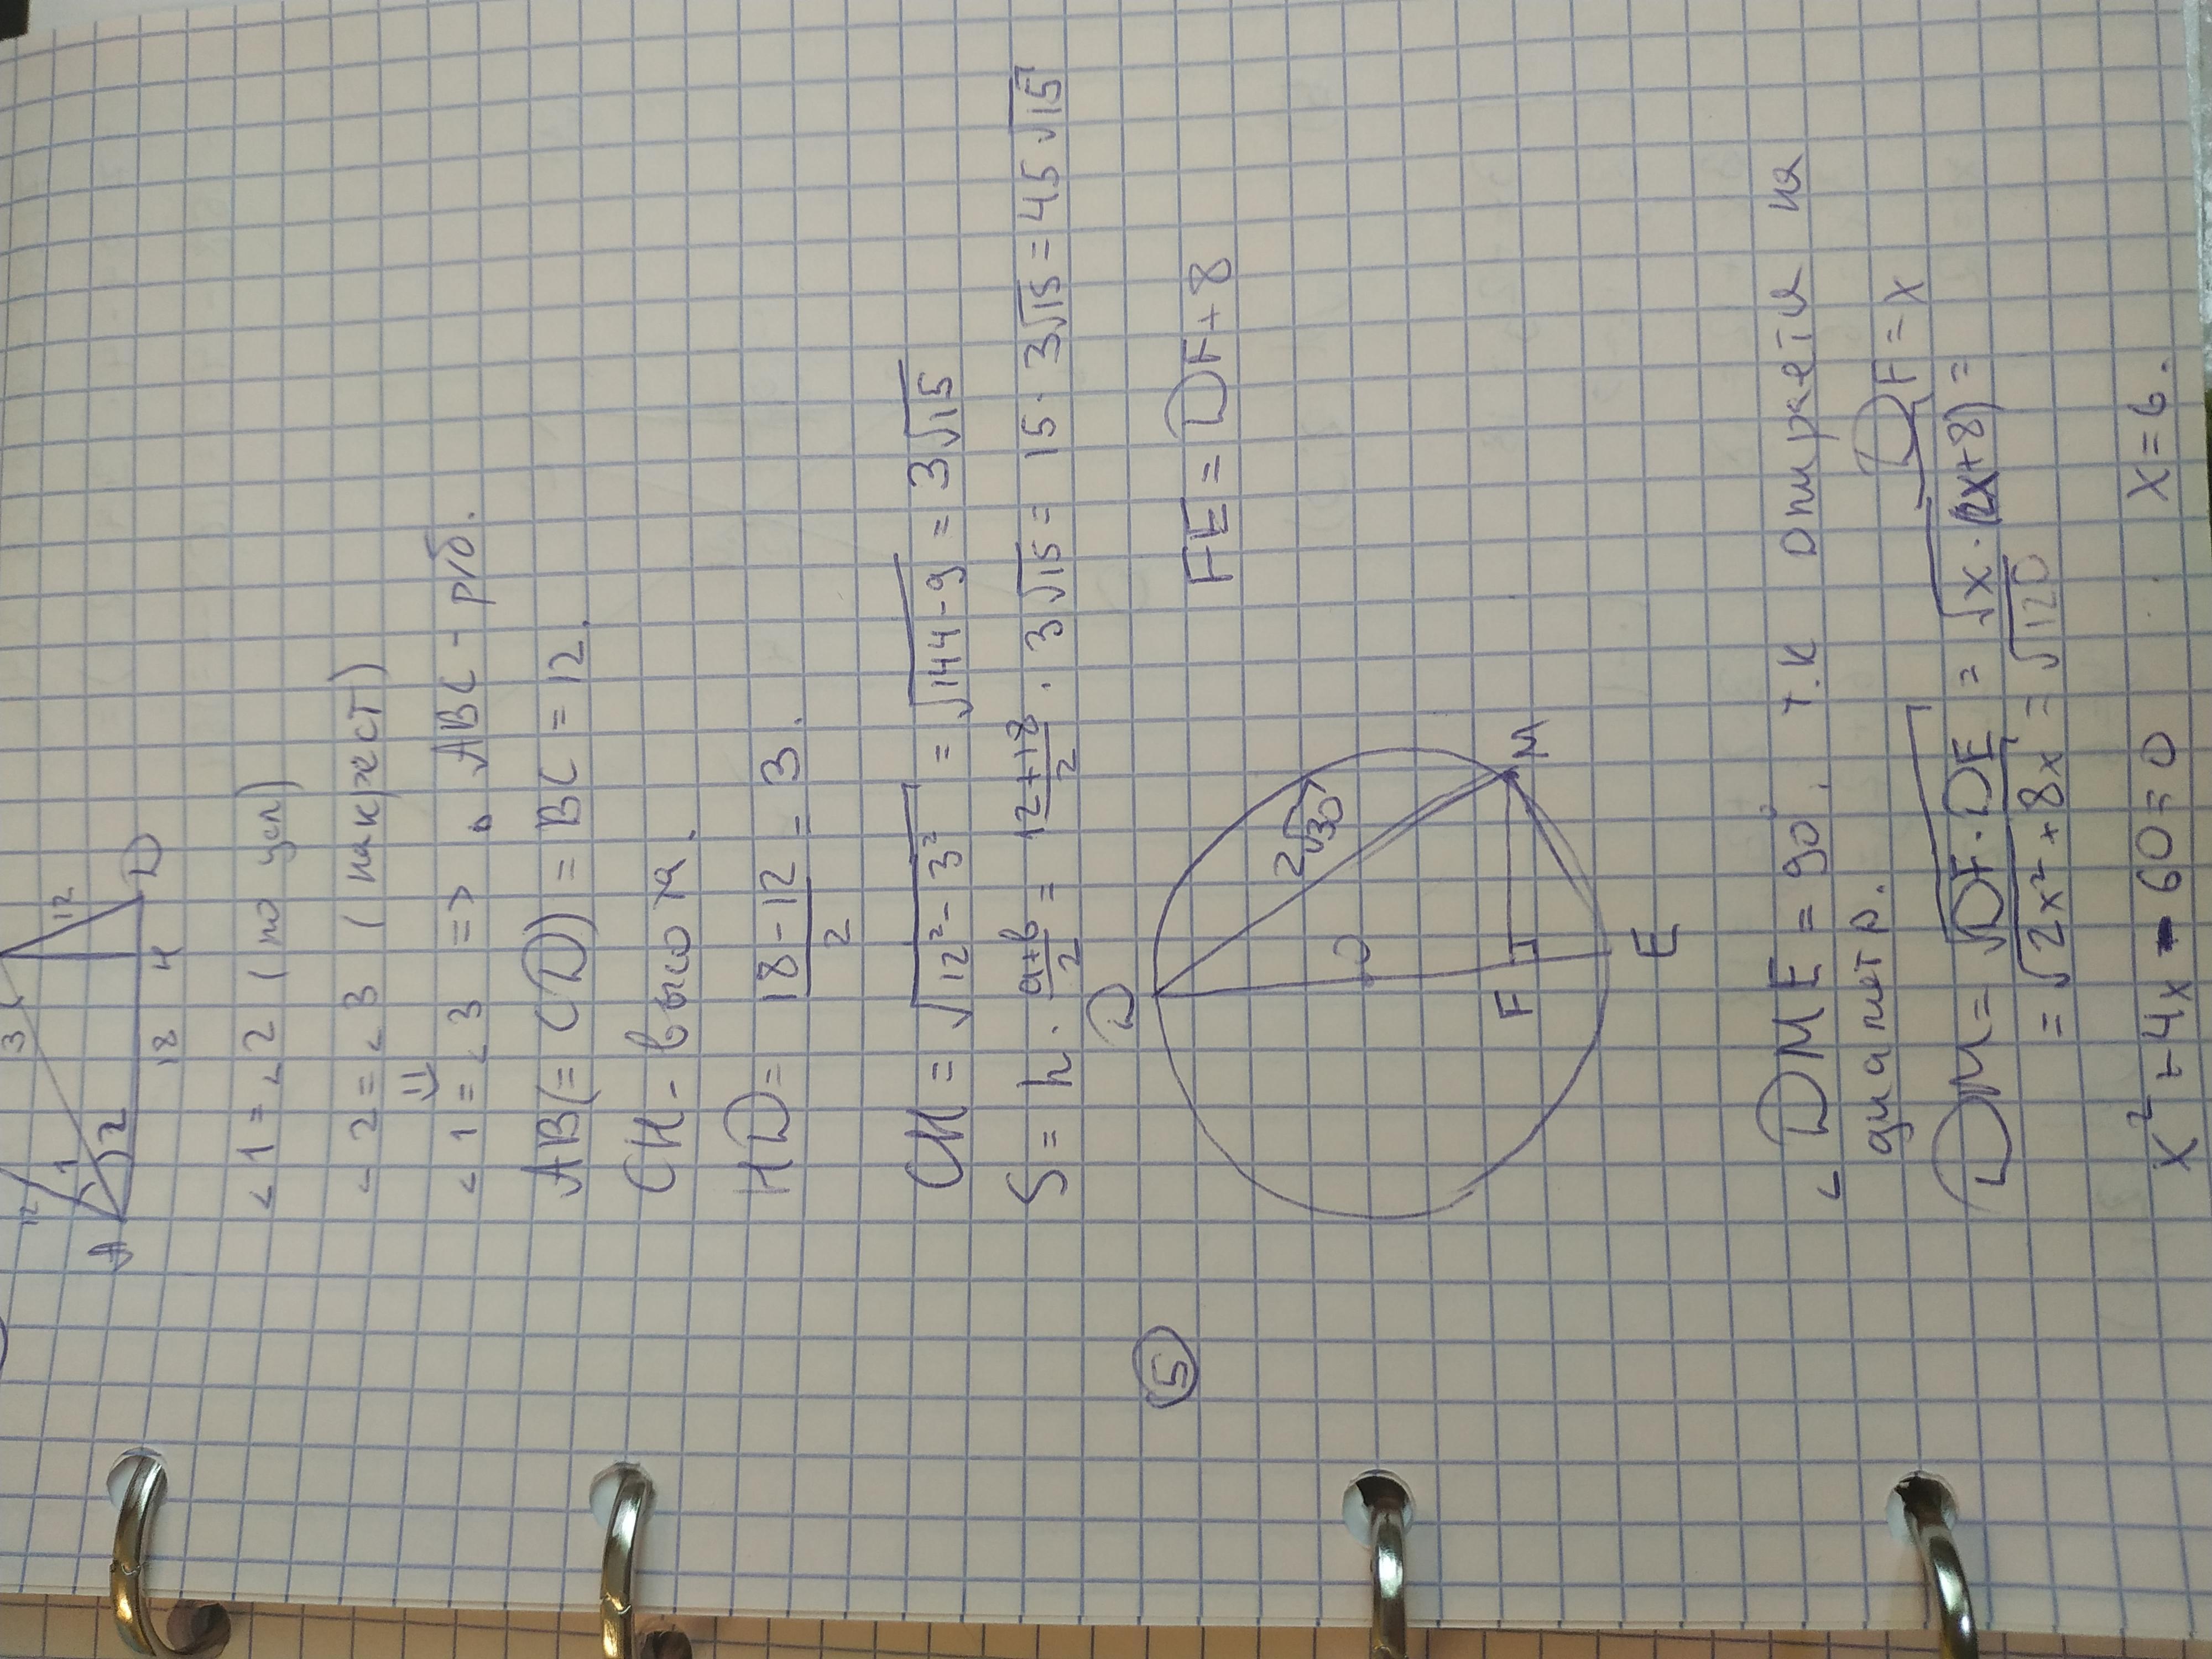 12
3
12
1
2
A
18
H
D
∠1 = ∠2 (по усл)
∠2 = ∠3 (накрест)
⇓
∠1 = ∠3 => ▵ ABC - р/б.
AB(= CD) = BC = 12.
CH - высота.
HD = \frac{18-12}{2} = 3.
CH = √(12² - 3²) = √(144-9) = 3√15
S = h · \frac{a+b}{2} = \frac{12+18}{2} · 3√15 = 15 · 3√15 = 45√15
5
D
FE = DF + 8
2√30
O
F
M
E
∠DME = 90°. т.к опирается на
диаметр.
DF = x
DM = √(DF·DE) = √(x·(2x+8)) =
= √(2x² + 8x) = √120
x² + 4x - 60 = 0 x = 6.